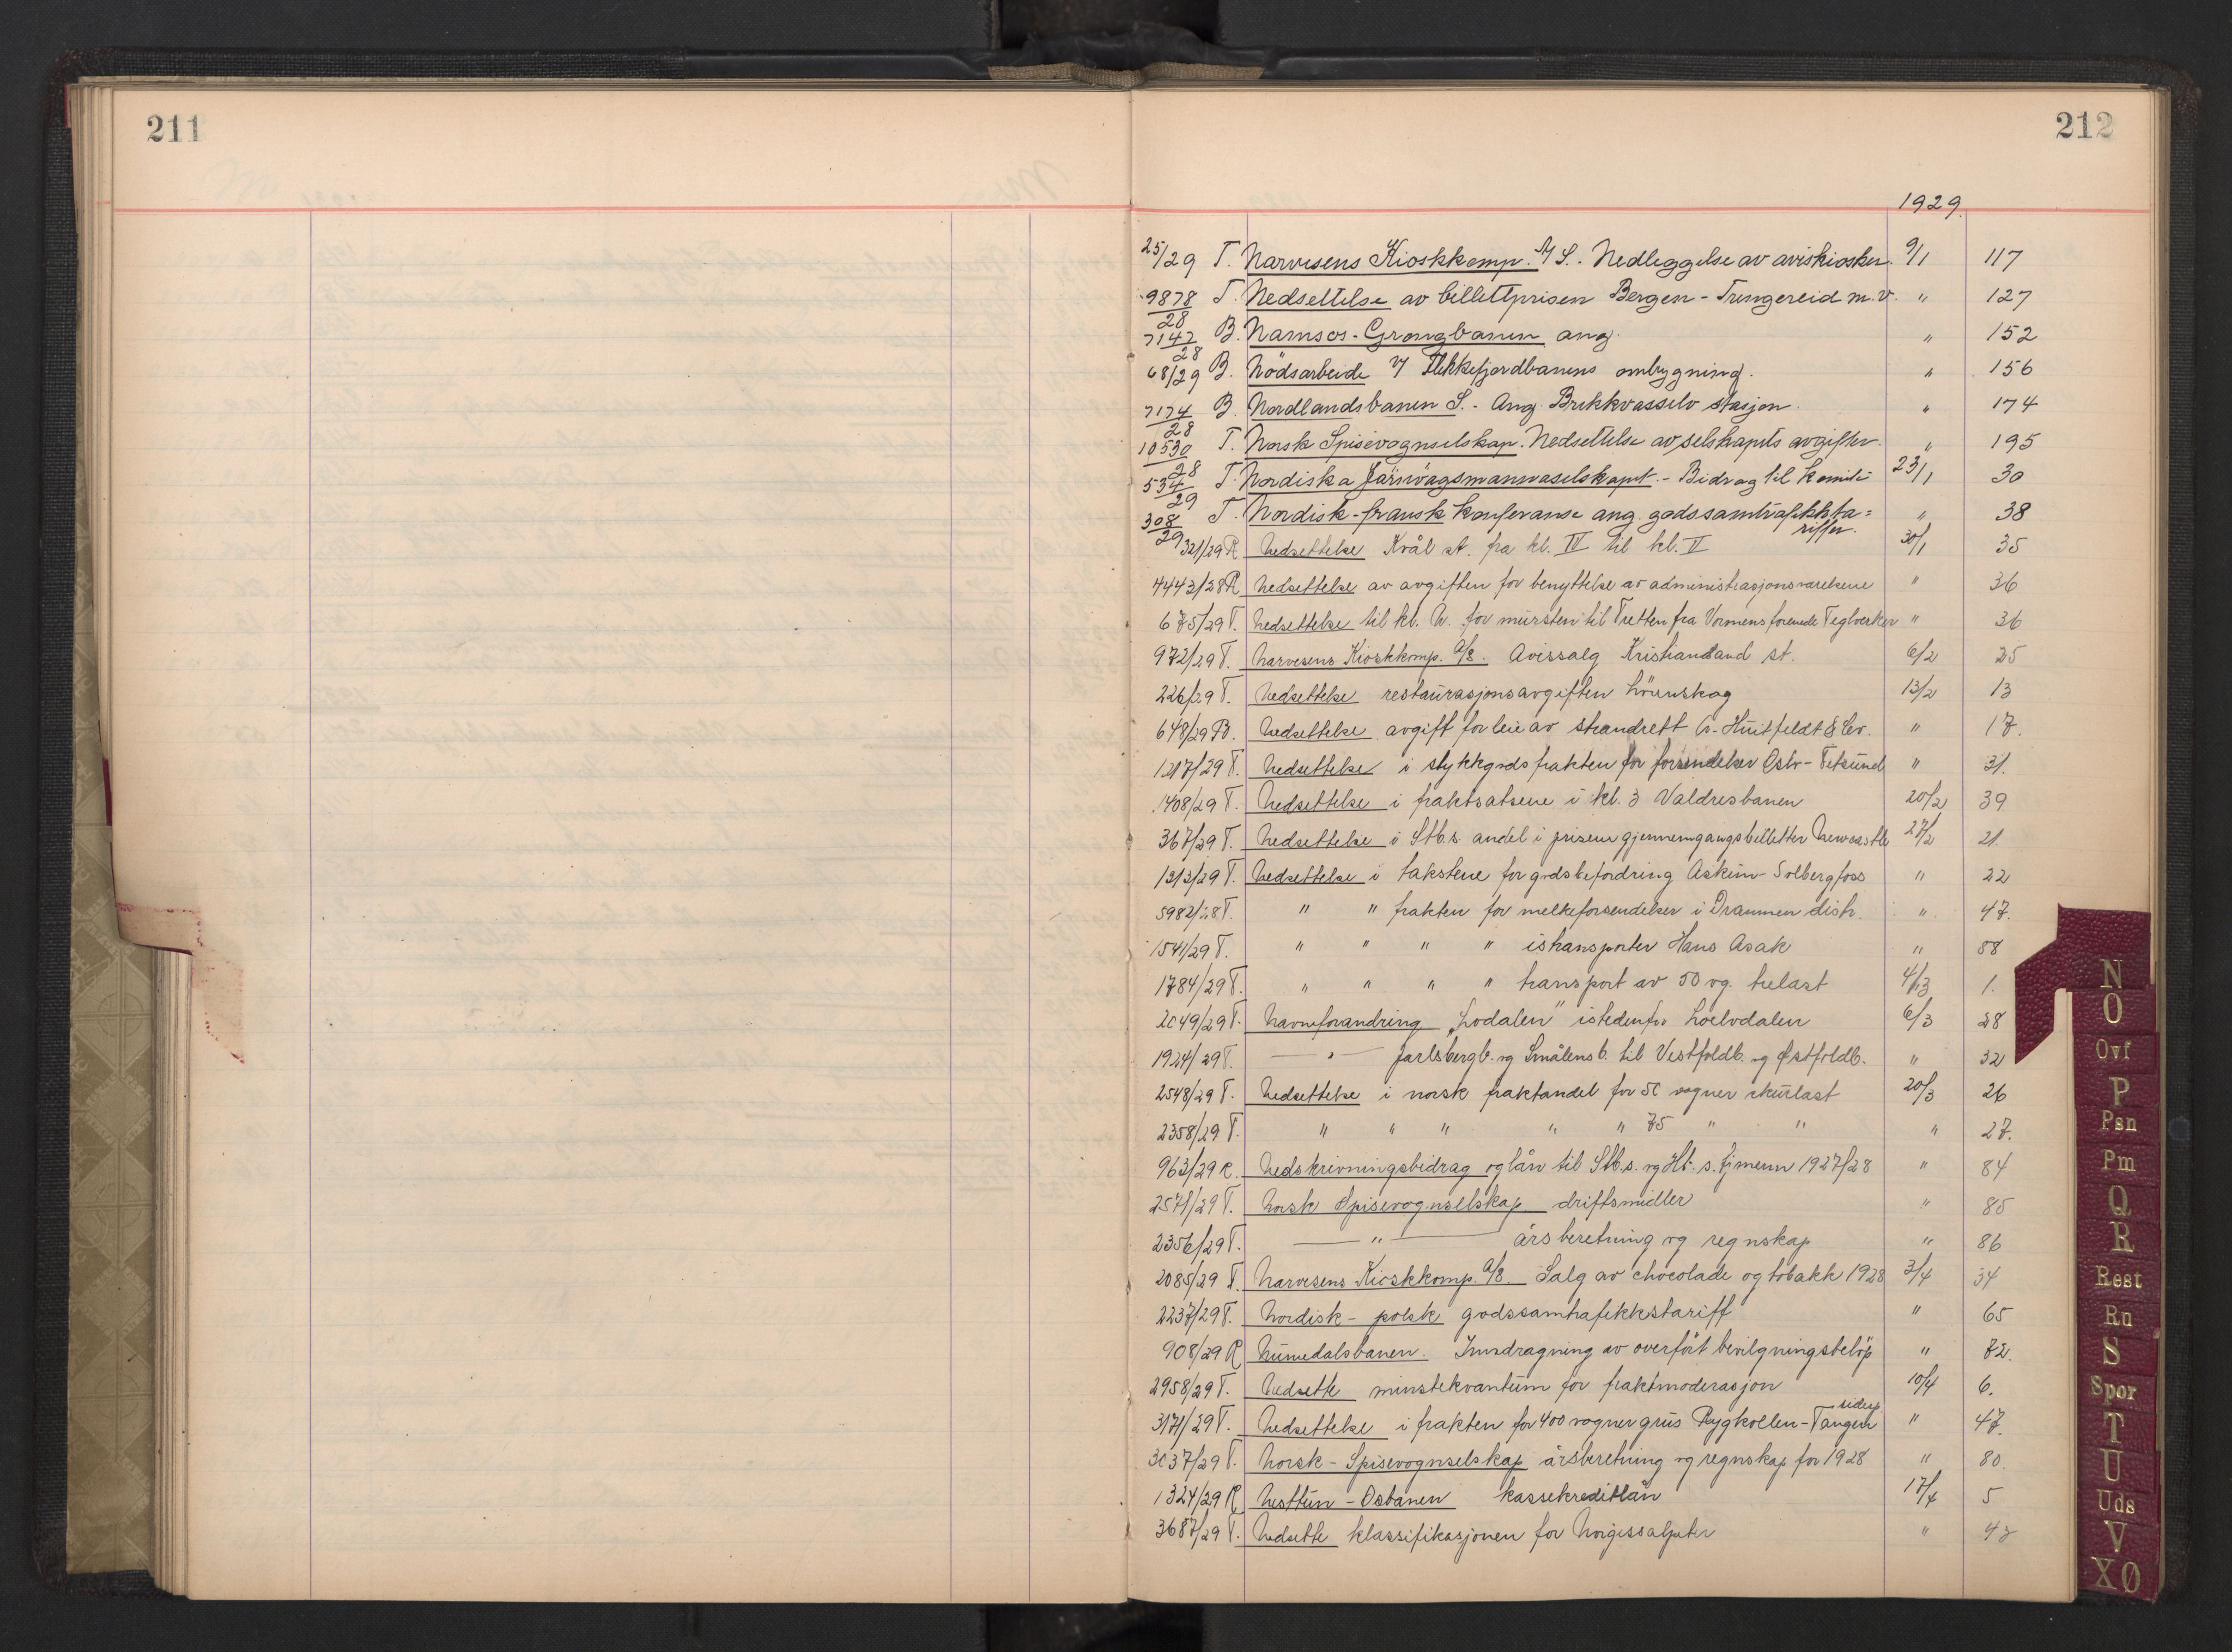 211
212
1929.
25/29 T. Narvesens Kioskkomp. A/S. - Nedleggelse av aviskiosker. 9/1 117
9878/28 T. Nedsettelse av billettprisen Bergen - Trengereid m.v. " 127
7142/28 B. Namsos-Grongbanen ang. " 152
68/29 B. Nödsarbeide v/ Flekkefjordbanens ombygning. " 156
7174/28 B. Nordlandsbanen S. - Ang. Brekkvasselv stasjon. " 174
10530/28 T. Norsk Spisevognselskap. Nedsettelse av selskapets avgifter. " 195
534/29 T. Nordiska Järnvägsmannaselskapet. - Bidrag til komité 23/1 30
308/29 T. Nordisk-fransk konferanse ang. godssamtrafikkta=
riffer. " 38
321/29 R Nedsettelse Kvål st. fra kl. IV til kl. V 30/1 35
4443/28 R Nedsettelse av avgiften for benyttelse av administrasjonsværelsene " 36
675/29 T. Nedsettelse til kl. W. for mursten til Tretten fra Vormens forenede Teglverker " 36
972/29 T. Narvesens Kioskkomp. A/S. Avissalg Kristiansand st. 6/2 25
226/29 T. Nedsettelse restaurasjonsavgiften Lörenskog 13/2 13
648/29 B. Nedsettelse avgift for leie av strandrett Huitfeldt & Co. " 17.
1217/29 T. Nedsettelse i stykkgodsfrakten for forsendelser Oslo - Fetsund " 31.
1408/29 T. Nedsettelse i fraktsatsene i kl. 3 Valdresbanen 20/2 39
367/29 T. Nedsettelse i Stb.s andel i prisene gjennemgangsbilletter Newcastle 27/2 21.
1313/29 T. Nedsettelse i takstene for godsbefordring Askim - Solbergfoss " 22
5982/28 T. " " frakten for melkeforsendelser i Drammen distr. " 47.
1541/29 T. " " " " istransporter Hans Asak " 88
1784/29 T. " " " " transport av 50 vg. trelast 4/3 1.
2049/29 T. Navneforandring "Lodalen" istedenfor Loelvdalen 6/3 28
1924/29 T. — " — Jarlsbergb. og Smålensb. til Vestfoldb. og Østfoldb. " 32
2548/29 T. Nedsettelse i norsk fraktandel for 50 vogner skurlast 20/3 26
2358/29 T. " " " " " 75 " " " 27.
963/29 R. Nedskrivningsbidrag og lån til Stb.s. og Hb.s. tj.menn 1927/28 " 84
2571/29 T. Norsk Spisevognselskap driftsmidler " 85
2356/29 T. — " — årsberetning og regnskap " 86
2085/29 T. Narvesens Kioskkomp. A/S. Salg av chocolade og tobakk 1928 3/4 34
2237/29 T. Nordisk - polsk godssamtrafikkstariff " 65
908/29 R Numedalsbanen. Inndragning av overfört bevilgningsbelöp " 72.
2958/29 T. Nedsette minstekvantum for fraktmoderasjon 10/4 6.
3171/29 T. Nedsettelse i frakten for 400 vogner grus Rygkollen - Tangen " 47.
3037/29 T. Norsk - Spisevognselskap årsberetning og regnskap for 1928 " 80.
1324/29 R Nesttun - Osbanen kassekreditlån 17/4 5
3687/29 T. Nedsette klassifikasjonen for Norgessalpeter "
N
O
Ovf
P
Psn
Pm
Q
R
Rest
Ru
S
Spor
T
U
Uds
V
XØ